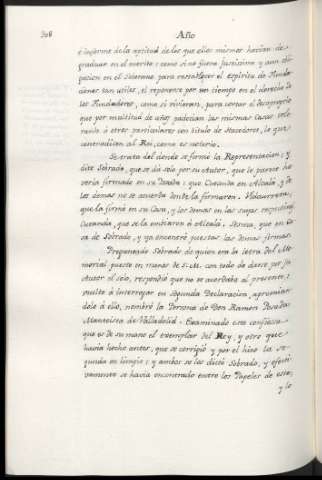 308
Año
é informe de la aptitud de los que ellos mismos havian de
graduar en el merito: como si no fuera justisimo y aun obli-
gacion en el Soberano, para restablecer el espiritu de Funda-
ciones tan utiles, el reponerse por un tiempo en el derecho de
los Fundadores, como si vivieran, para cortar el desarreglo
que por multitud de años padecian las mismas Casas; sola-
mente á otros particulares con titulo de Hacedores, lo que
contradicen al Rei, como es notorio.
Se trata del donde se formo la Representacion: y
dice Sobrado, que se dió solo por su Autor, que le parece ha-
verla firmado en su Posada: que Cuéanda en Alcalá, y de
los demas no se acuerda donde la firmaron. Vidaurreta,
que la firmó en su Casa, y los demas en las suyas respectivas
Cuéanda, que se la embiaron á Alcalá.
en Ca-
sa de Sobrado, y ya encontró puestas las demas firmas.
Preguntado Sobrado de quien era la letra del Me-
morial puesto en manos de S. M. con todo de darse por su
Autor el solo, respondió que no se acordaba al presente;
á interrogar en segunda Declaracion, apremian-
dole á ello, nombró la Persona de Don Ramon Posada
Manteista de Valladolid. Examinado este confiesa
que es de su mano el exemplar del Rey, y otro que
havia hecho antes, que se corrigió y por el hizo la se-
gunda en limpio; y ambos se los dictó Sobrado, y efecti-
vamente se havia encontrado entre los Papeles de este,
y lo